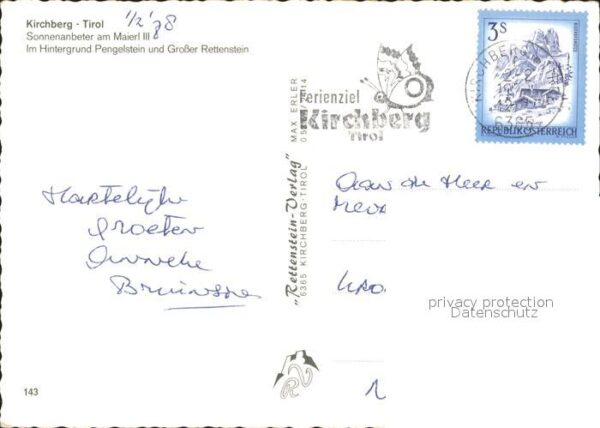 Kirchberg - Tirol
Sonnenanbeter am Maierl III
Im Hintergrund Pengelstein und Großer Rettenstein
1/2 '78
3 S
REPUBLIK ÖSTERREICH
KIRCHBERG
6365
Ferienziel
Kirchberg
Tirol
MAX ERLER
„Rettenstein-Verlag"
6365 KIRCHBERG-TIROL
Hartelijke
groeten
Anneke
Aan de Heer en
Mev
privacy protection
Datenschutz
143